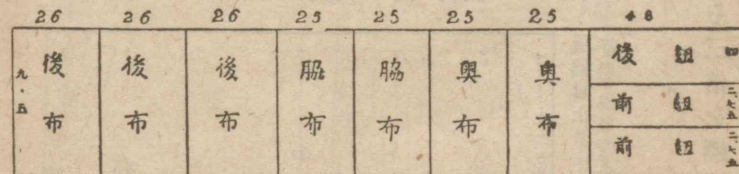 26 26 26 25 25 25 25 48
九・五
後布
後布
後布
脇布
脇布
奥布
奥布
後紐 四
前紐 二、七五
前紐 二、七五